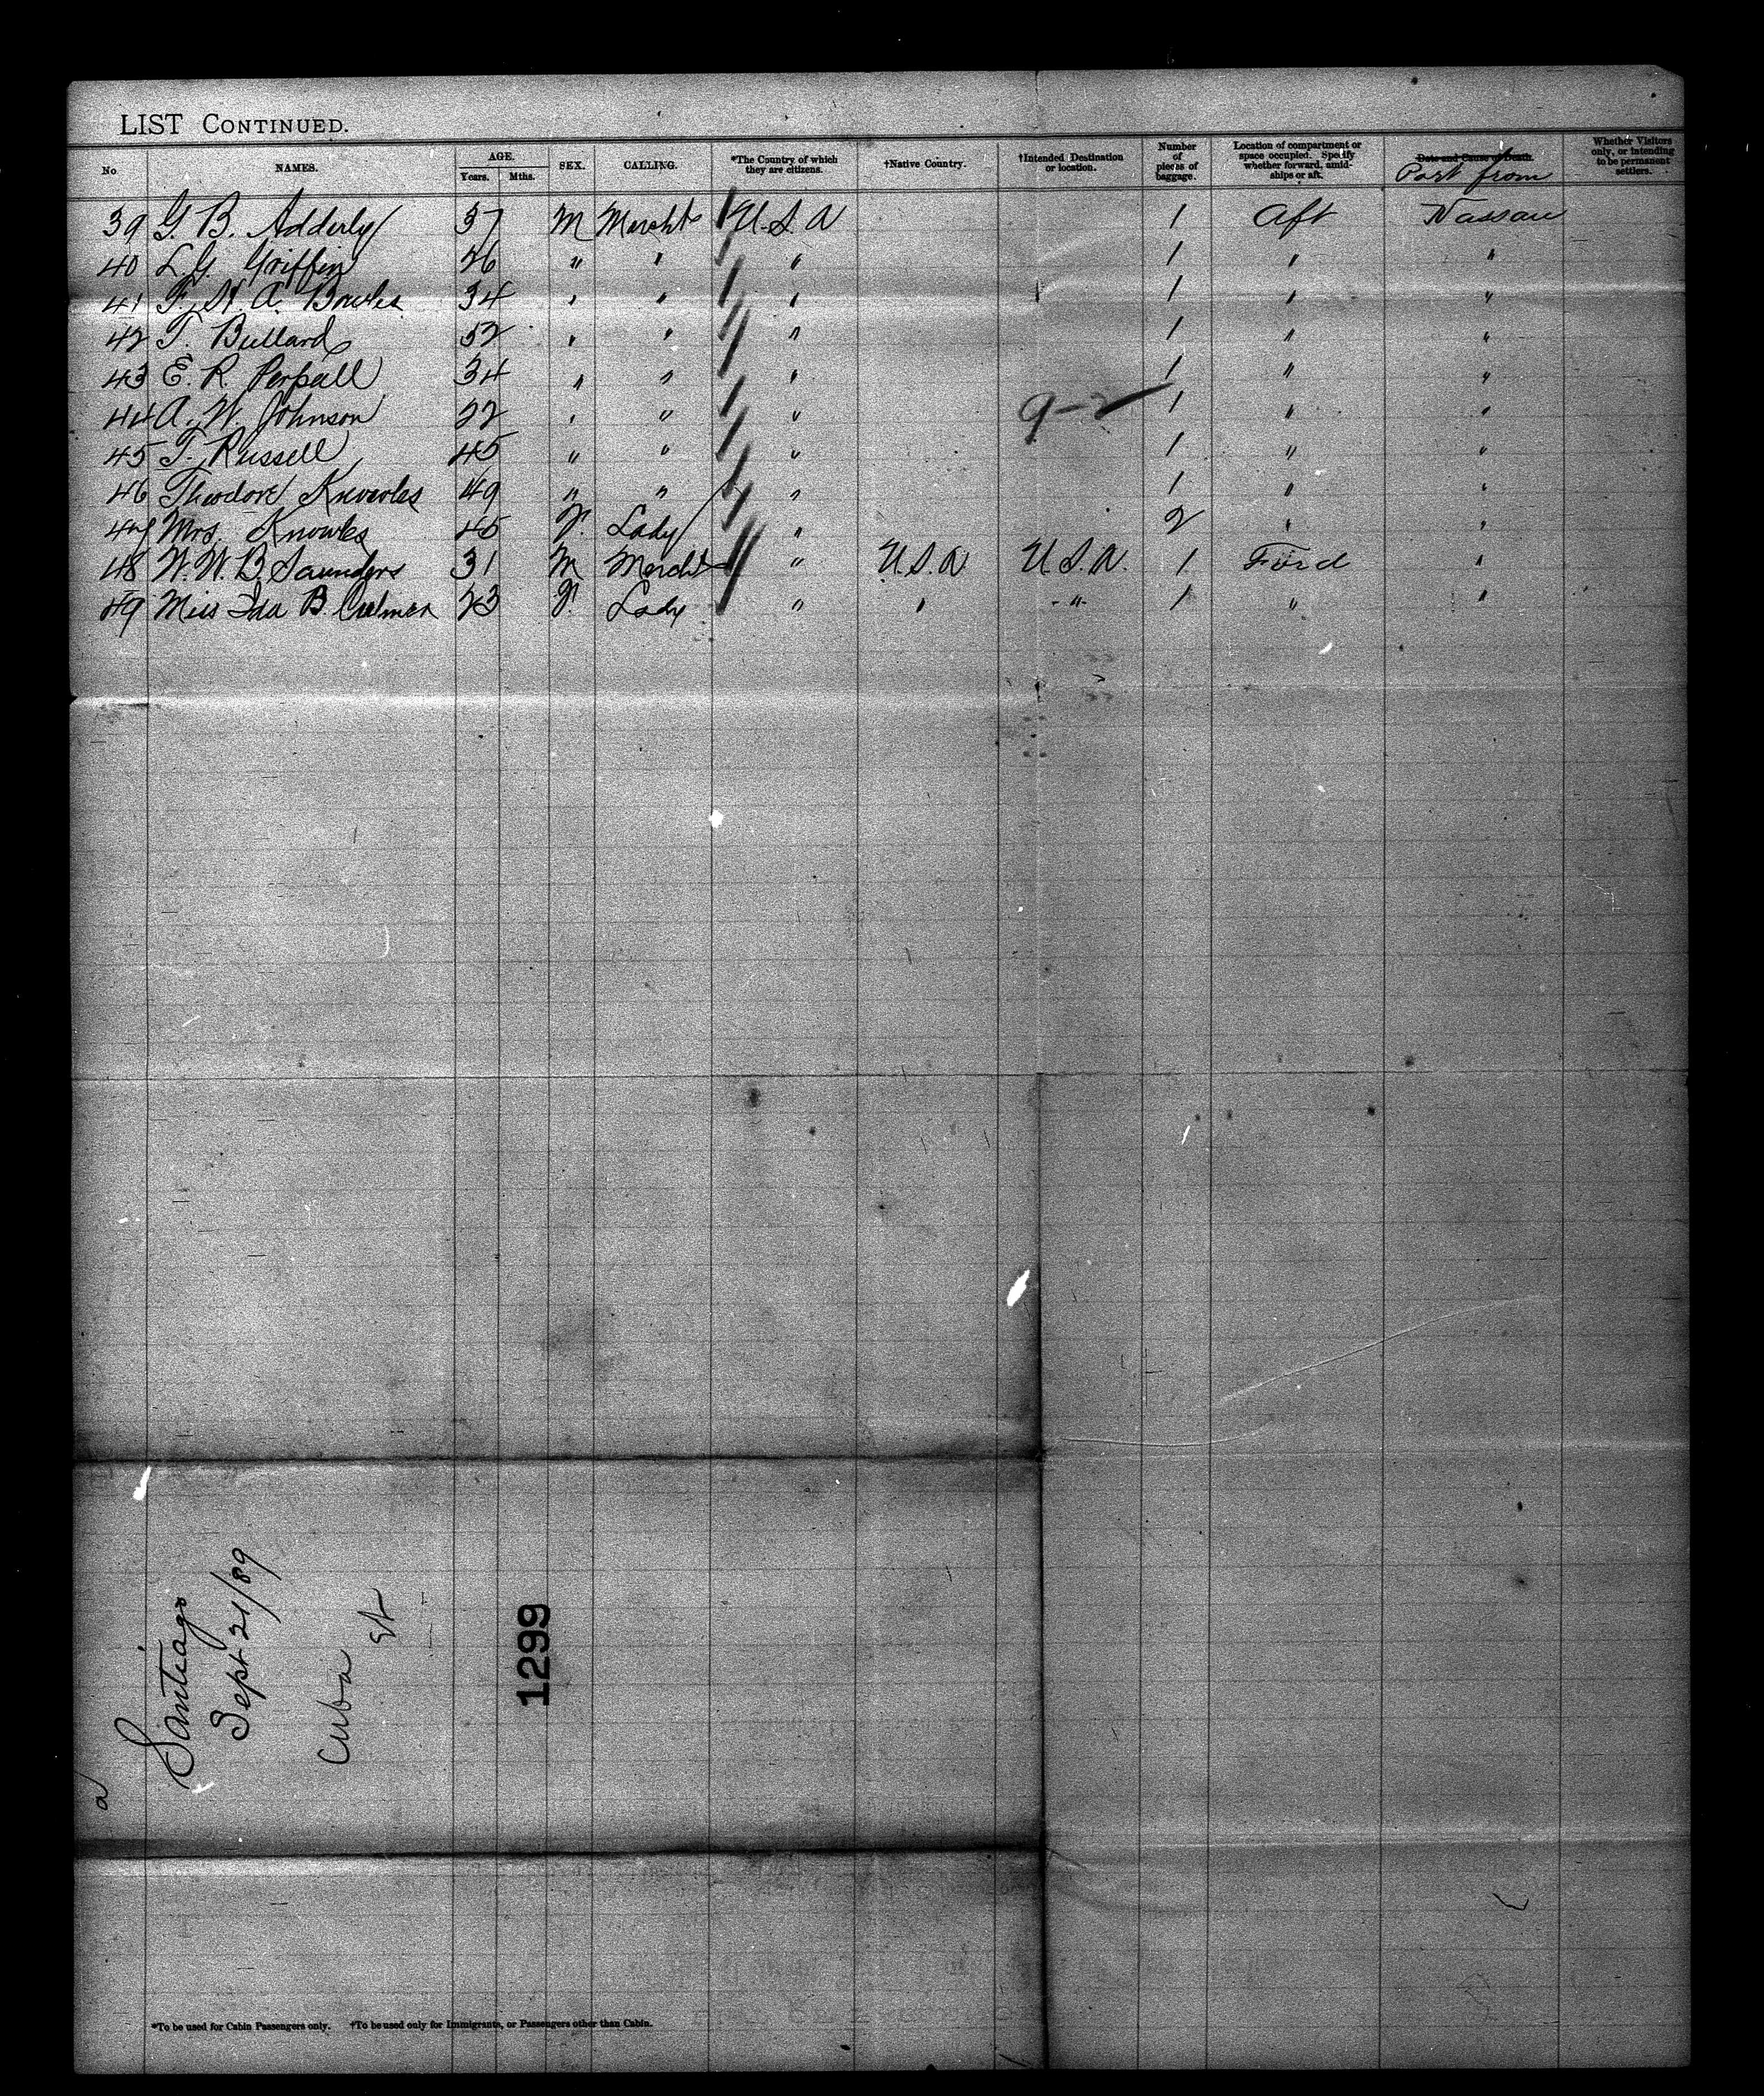 LIST CONTINUED.
No NAMES. AGE. Years. Mths. SEX. CALLING. *The Country of which they are citizens. †Native Country. †Intended Destination or location. Number of pieces of baggage. Location of compartment or space occupied. Specify whether forward, amidships or aft. Date and Cause of Death. Port from Whether Visitors only, or intending to be permanent settlers.
39 G. B. Adderly 37 M Mercht U.S.A 1 Aft Nassau
40 L. G. Griffin 26 " " " 1 " "
41 F. A. Bowles 34 " " " 1 " "
42 T. Bullard 52 " " " 1 " "
43 E. R. Perpall 34 " " " 1 " "
44 A. W. Johnson 22 " " " 9-2 1 " "
45 T. Russell 45 " " " 1 " "
46 Theodore Knowles 49 " " " 1 " "
47 Mrs. Knowles 45 F. Lady " 2 " "
48 W. W. B. Saunders 31 M Mercht " U.S.A U.S.A. 1 Ford "
49 Miss Ida B. 23 F. Lady " " " 1 " "
Santiago
Sept 21/89
Cuba
1299
*To be used for Cabin Passengers only. †To be used only for Immigrants, or Passengers other than Cabin.